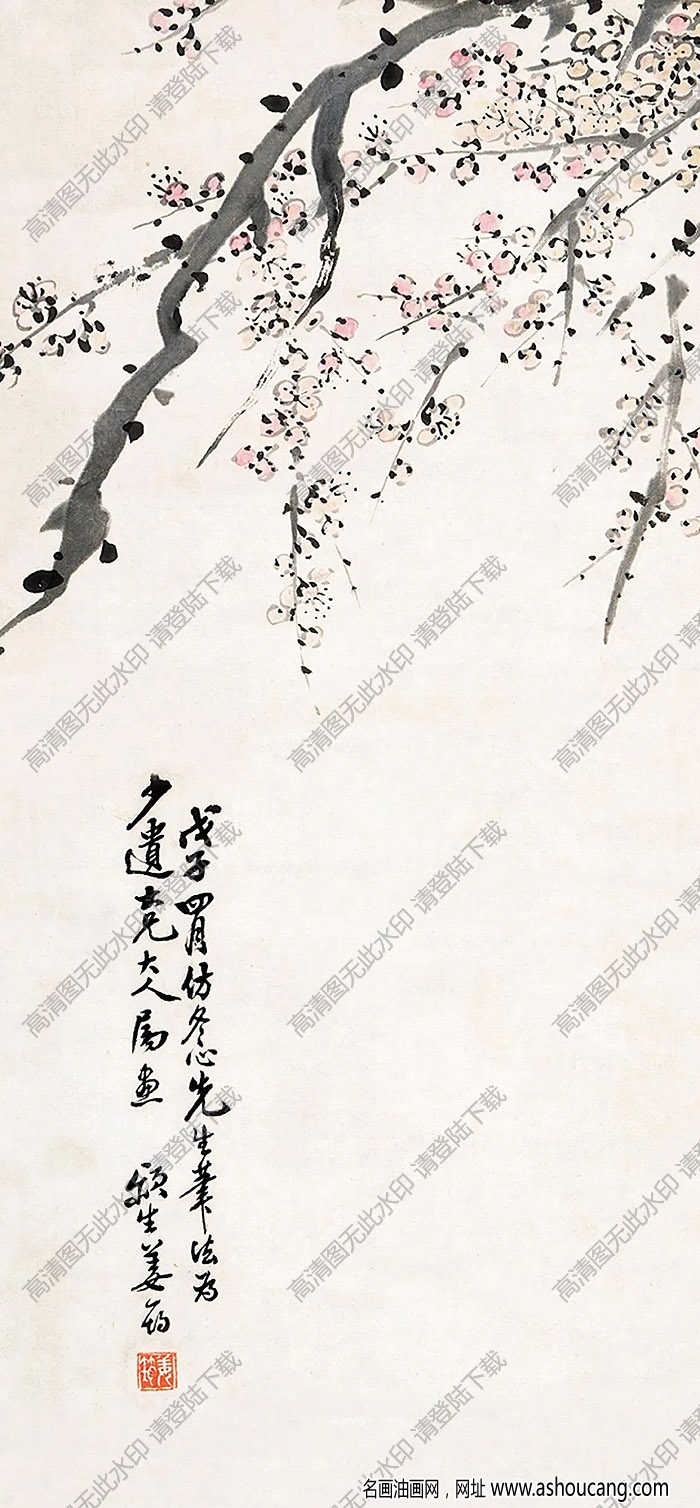 戊子四月仿冬心先生筆法為
少遺大兄大人属畫 穎生姜筠
姜筠
高清图无此水印 请登陆下载
名画油画网，网址 www.ashoucang.com